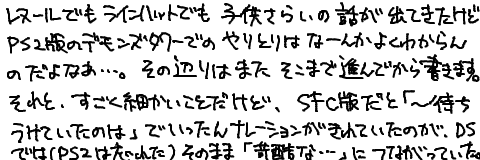 レヌールでもラインハットでも 子供さらいの話が出てきたけど
PS2版のデモンズタワーでの やりとりは なーんかよくわからん
のだよなあ…。その辺りはまた そこまで進んでから書きます。
それと、すごく細かいことだけど、SFC版だと「〜待ち
うけていたのは」でいったんナレーションがきれていたのが、DS
では(PS2は忘れた)そのまま「苛酷な…」につながっていた。